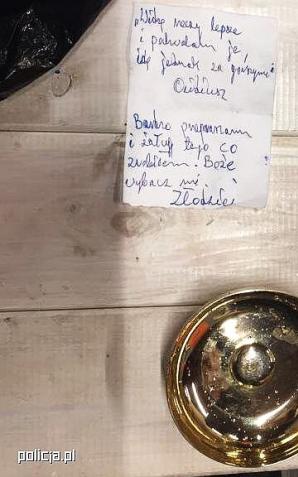 „Widzę rzeczy lepsze
i pochwalam je,
idę jednak za gorszymi"
Owidiusz
Bardzo przepraszam
i żałuję tego co
zrobiłem. Boże
wybacz mi.
Złodziej
policja.pl